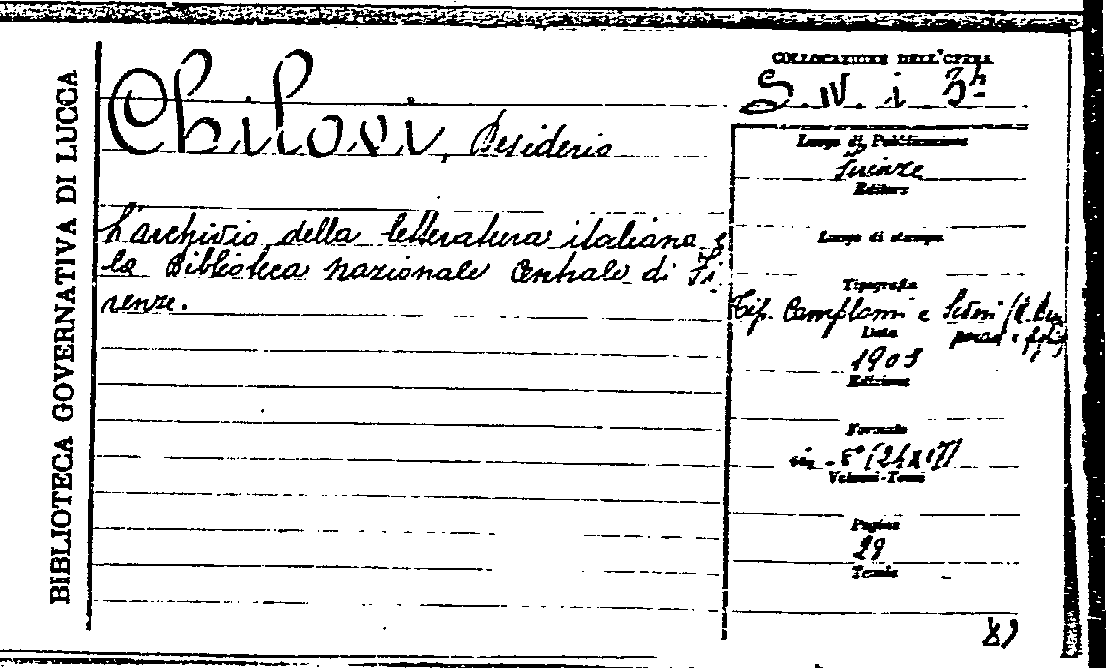 BIBLIOTECA GOVERNATIVA DI LUCCA
Chilovi, Desiderio
L'archivio della letteratura italiana e
la Biblioteca nazionale centrale di Fi-
renze.
COLLOCAZIONE DELL'OPERA
S. IV. i. 3
Luogo di Pubblicazione
Firenze
Editore
Luogo di stampa
Tipografia
Tip. e
Data
1903
Edizione
Formato
in-8° (24x17)
Volumi-Tomi
Pagine
29
Tomia